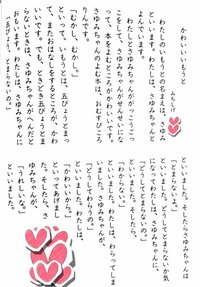 かわいいいもうと
わたしのいもうとの名まえは、さゆみ
といいます。そしてわたしは、
わたしとさゆみちゃんが
こをして、さゆみちゃんがせんせいにな
って、本をよむところがかわいいです。
さゆみちゃんのよむ本は、おむすびころ
りんです。
「むかし、むかし。」
といって、いもうとは、五びょうとまっ
て、またおはなしをするところが、かわ
いいです。でも、ときどき五びょうとま
らないときは、さゆみちゃんがなんだと
おもいます。わたしは、さゆみちゃんに
「五びょう、とまらないの。」
といいました。そしたらさゆみちゃんは
「とまらないよ。」
といいました。どうしてとまらないか気
になって、わたしは、さゆみちゃんに、
「どうしてとまらないの。」
といいました。そしたら、
「わからない。」
といいました。わたしは、わらってしま
いました。さゆみちゃんが、
「どうしてわらうの。」
といいました。わたしは、
「かわいいから。」
といいました。そしたら、さ
ゆみちゃんが、
「うれしいな。」
といいました。